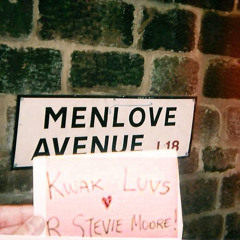 MENLOVE
AVENUE L18
KWAK LUVS
R STEVIE MOORE!